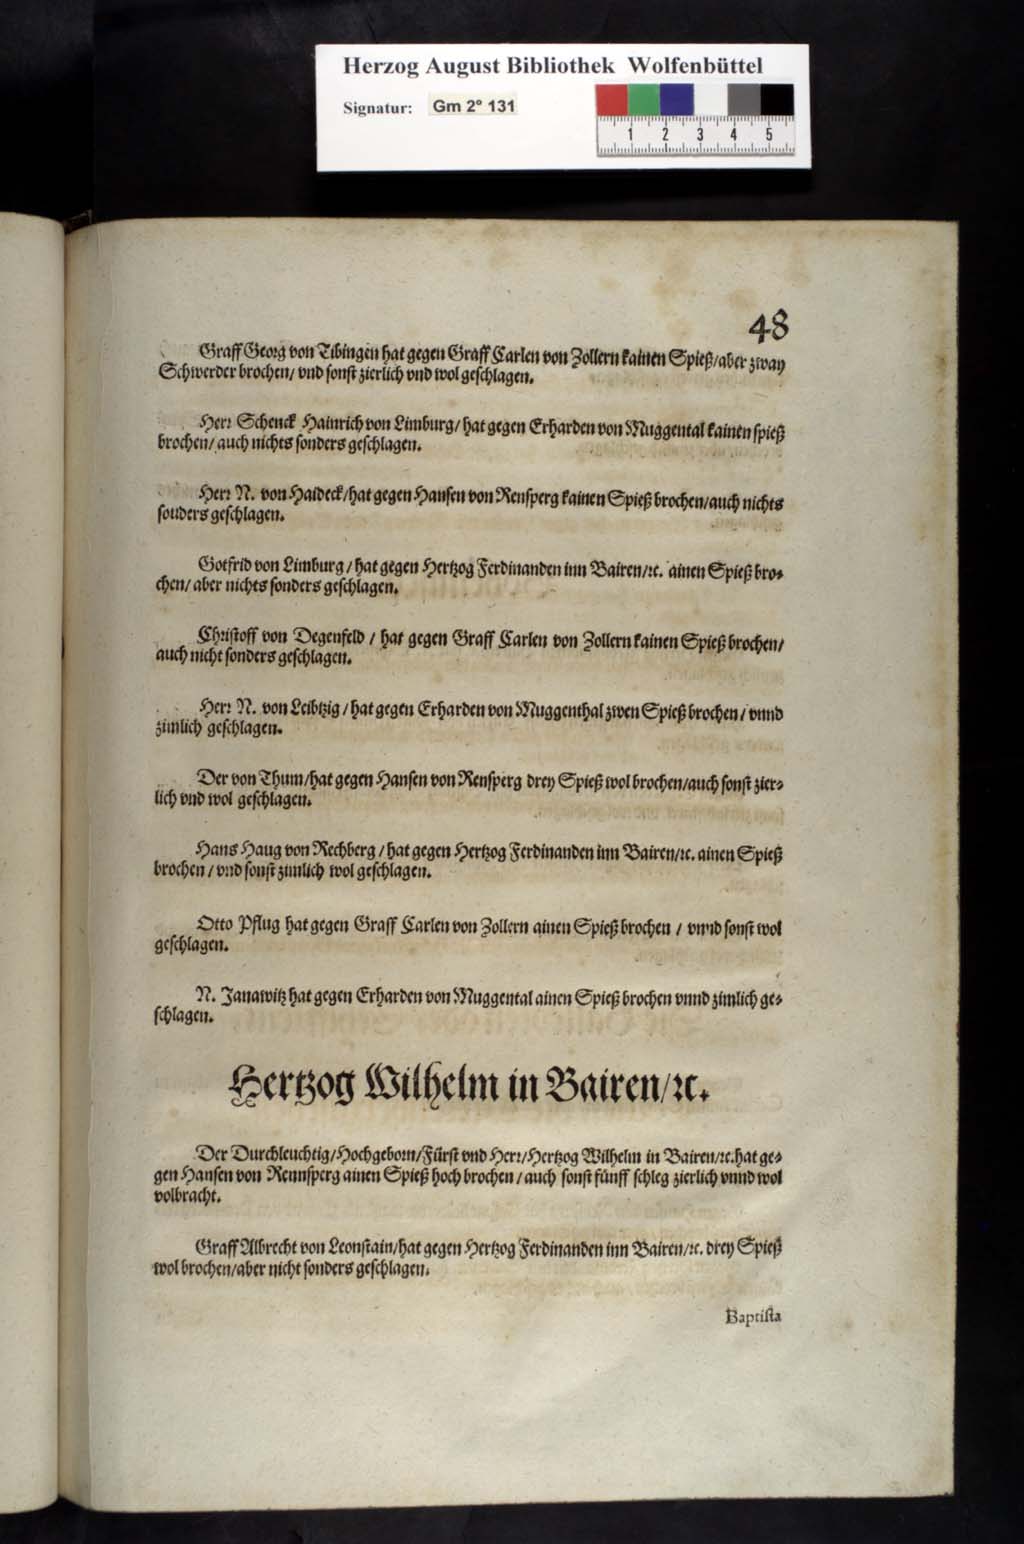 Herzog August Bibliothek Wolfenbüttel
Signatur: Gm 2° 131
1 2 3 4 5
48
Graff Georg von Tibingen hat gegen Graff Carlen von Zollern kainen Spieß/aber zway
Schwerder brochen/ vnd sonst zierlich vnd wol geschlagen.
Herr Schenck Hainrich von Limburg/ hat gegen Erharden von Muggental kainen spieß
brochen/ auch nichts sonders geschlagen.
Herr N. von Haideck/hat gegen Hansen von Rensperg kainen Spieß brochen/auch nichts
sonders geschlagen.
Gotfrid von Limburg / hat gegen Hertzog Ferdinanden inn Bairen/ꝛc. ainen Spieß bro-
chen/ aber nichts sonders geschlagen.
Christoff von Degenfeld / hat gegen Graff Carlen von Zollern kainen Spieß brochen/
auch nicht sonders geschlagen.
Herr N. von Leibtzig / hat gegen Erharden von Muggenthal zwen Spieß brochen / vnnd
zimlich geschlagen.
Der von Thum/hat gegen Hansen von Rensperg drey Spieß wol brochen/auch sonst zier-
lich vnd wol geschlagen.
Hans Haug von Rechberg / hat gegen Hertzog Ferdinanden inn Bairen/ꝛc. ainen Spieß
brochen / vnd sonst zimlich wol geschlagen.
Otto Pflug hat gegen Graff Carlen von Zollern ainen Spieß brochen / vnnd sonst wol
geschlagen.
N. Janawitz hat gegen Erharden von Muggental ainen Spieß brochen vnnd zimlich ge-
schlagen.
Hertzog Wilhelm in Bairen/ꝛc.
Der Durchleuchtig/Hochgeborn/Fürst vnd Herr/Hertzog Wilhelm in Bairen/ꝛc.hat ge-
gen Hansen von Rennsperg ainen Spieß hoch brochen / auch sonst fünff schleg zierlich vnnd wol
volbracht.
Graff Albrecht von Leonstain/hat gegen Hertzog Ferdinanden inn Bairen/ꝛc. drey Spieß
wol brochen/aber nicht sonders geschlagen.
Baptista